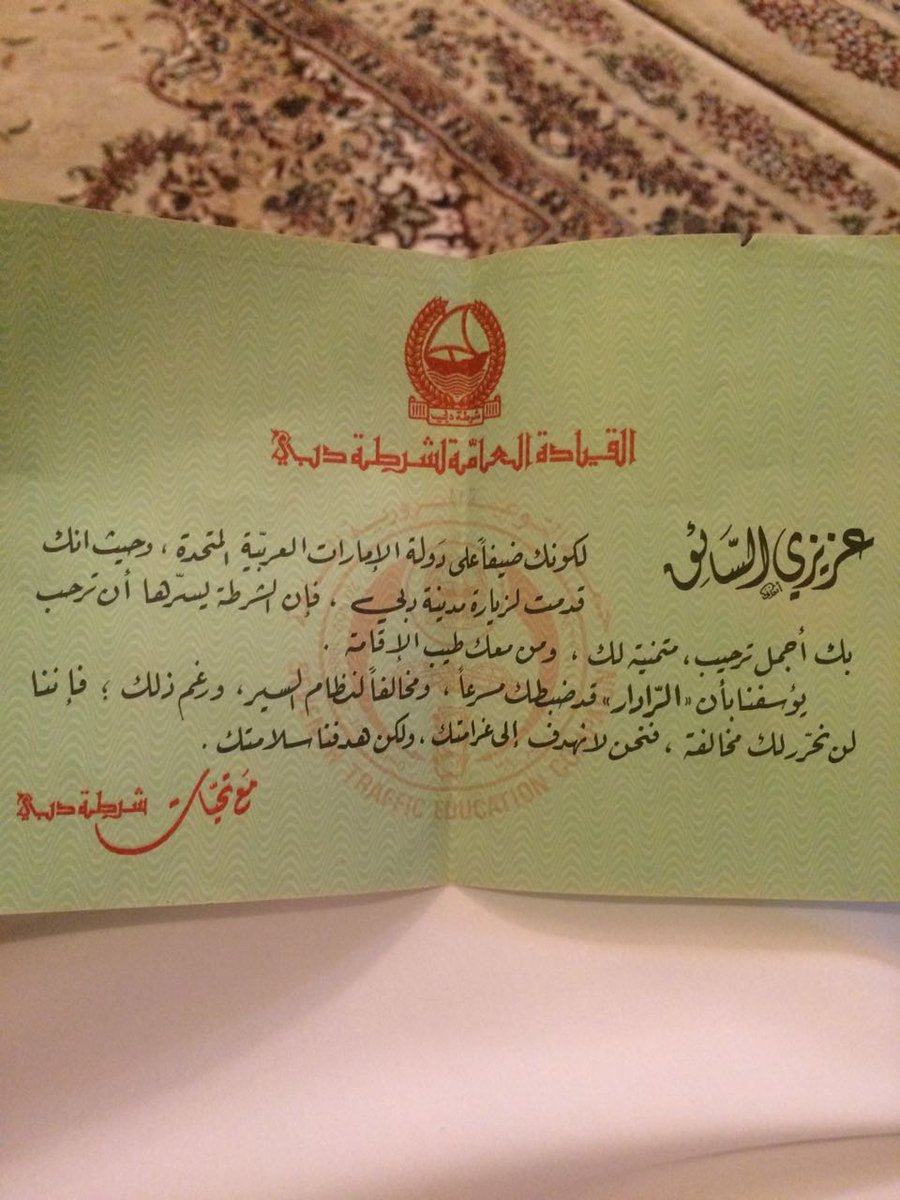 شرطة دبي
القيادة العامّة لشرطة دبي
عزيزي السَّائق
لكونك ضيفاً على دَولة الإمارات العربيّة المتحدة ، وحيث انك
قدمت لزيارة مدينة دبي ، فإن الشرطة يسرّها أن ترحب
بك أجمل ترحيب ، متمنية لك ، ومن معك طيب الإقامة .
يؤسفنا بأن «الرّادار» قد ضبطك مسرعاً ، ومخالفاً لنظام السير ، ورغم ذلك ؛ فإننا
لن نحرّر لك مخالفة ، فنحن لا نهدف إلى غرامتك ، ولكن هدفنا سلامتك .
مَع تحيّات شرطة دبي
TRAFFIC EDUCATION